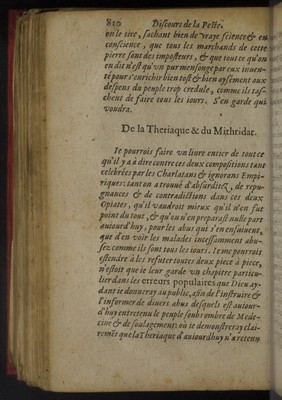 810 Discours de la Peste.
on le tire, sachant bien de vraye science & en
conscience, que tous les marchands de ceste
pierre sont des imposteurs, & que tout ce qu'on
en dit n'est qu'vn pur mensonge par eux inuen-
té pour s'enrichir bien tost & bien aysément aux
despens du peuple trop credule, comme ils tas-
chent de faire tous les iours. S'en garde qui
voudra.
De la Theriaque & du Mithridat.
Ie pourrois faire vn liure entier de tout ce
qu'il y a à dire contre ces deux compositions tant
celebrées par les Charlatans & ignorans Empi-
riques: tant on a trouué d'absurditez, de repu-
gnances & de contradictions dans ces deux
Opiates, qu'il vaudroit mieux qu'il n'en fut
point du tout, & qu'on n'en preparast nulle part
auiourd'huy, pour les abus qui s'en ensuiuent,
que d'en voir les malades incessamment abu-
sez comme ils sont tous les iours. Ie me pourrois
estendre à les refuter toutes deux piece à piece,
n'estoit que ie leur garde vn chapitre particu-
lier dans les erreurs populaires que Dieu ay-
dant ie donneray au public, afin de l'instruire &
l'informer de diuers abus desquels est auiour-
d'huy entretenu le peuple soubs ombre de Mede-
cine & de soulagement: où ie demonstreray clai-
rement que la Theriaque d'auiourdhuy n'a retenu